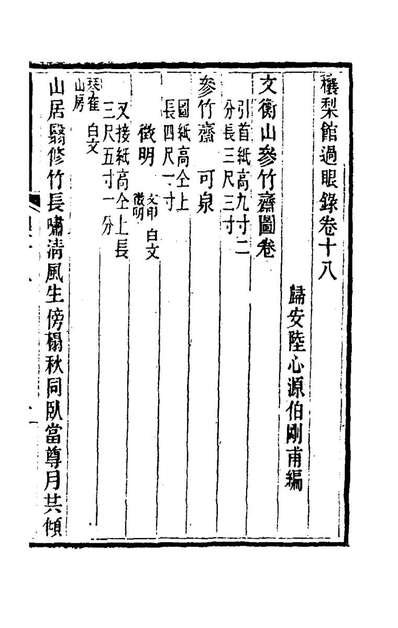 穰梨館過眼錄卷十八
歸安陸心源伯剛甫編
文衡山參竹齋圖卷
引首紙高九寸二
分長三尺三寸
參竹齋　可泉
圖紙高仝上
長四尺一寸
徵明　文印徵明白文
又接紙高仝上長
三尺五寸一分
琴雀山房白文
山居翳修竹長嘯清風生傍榻秋同臥當尊月共傾